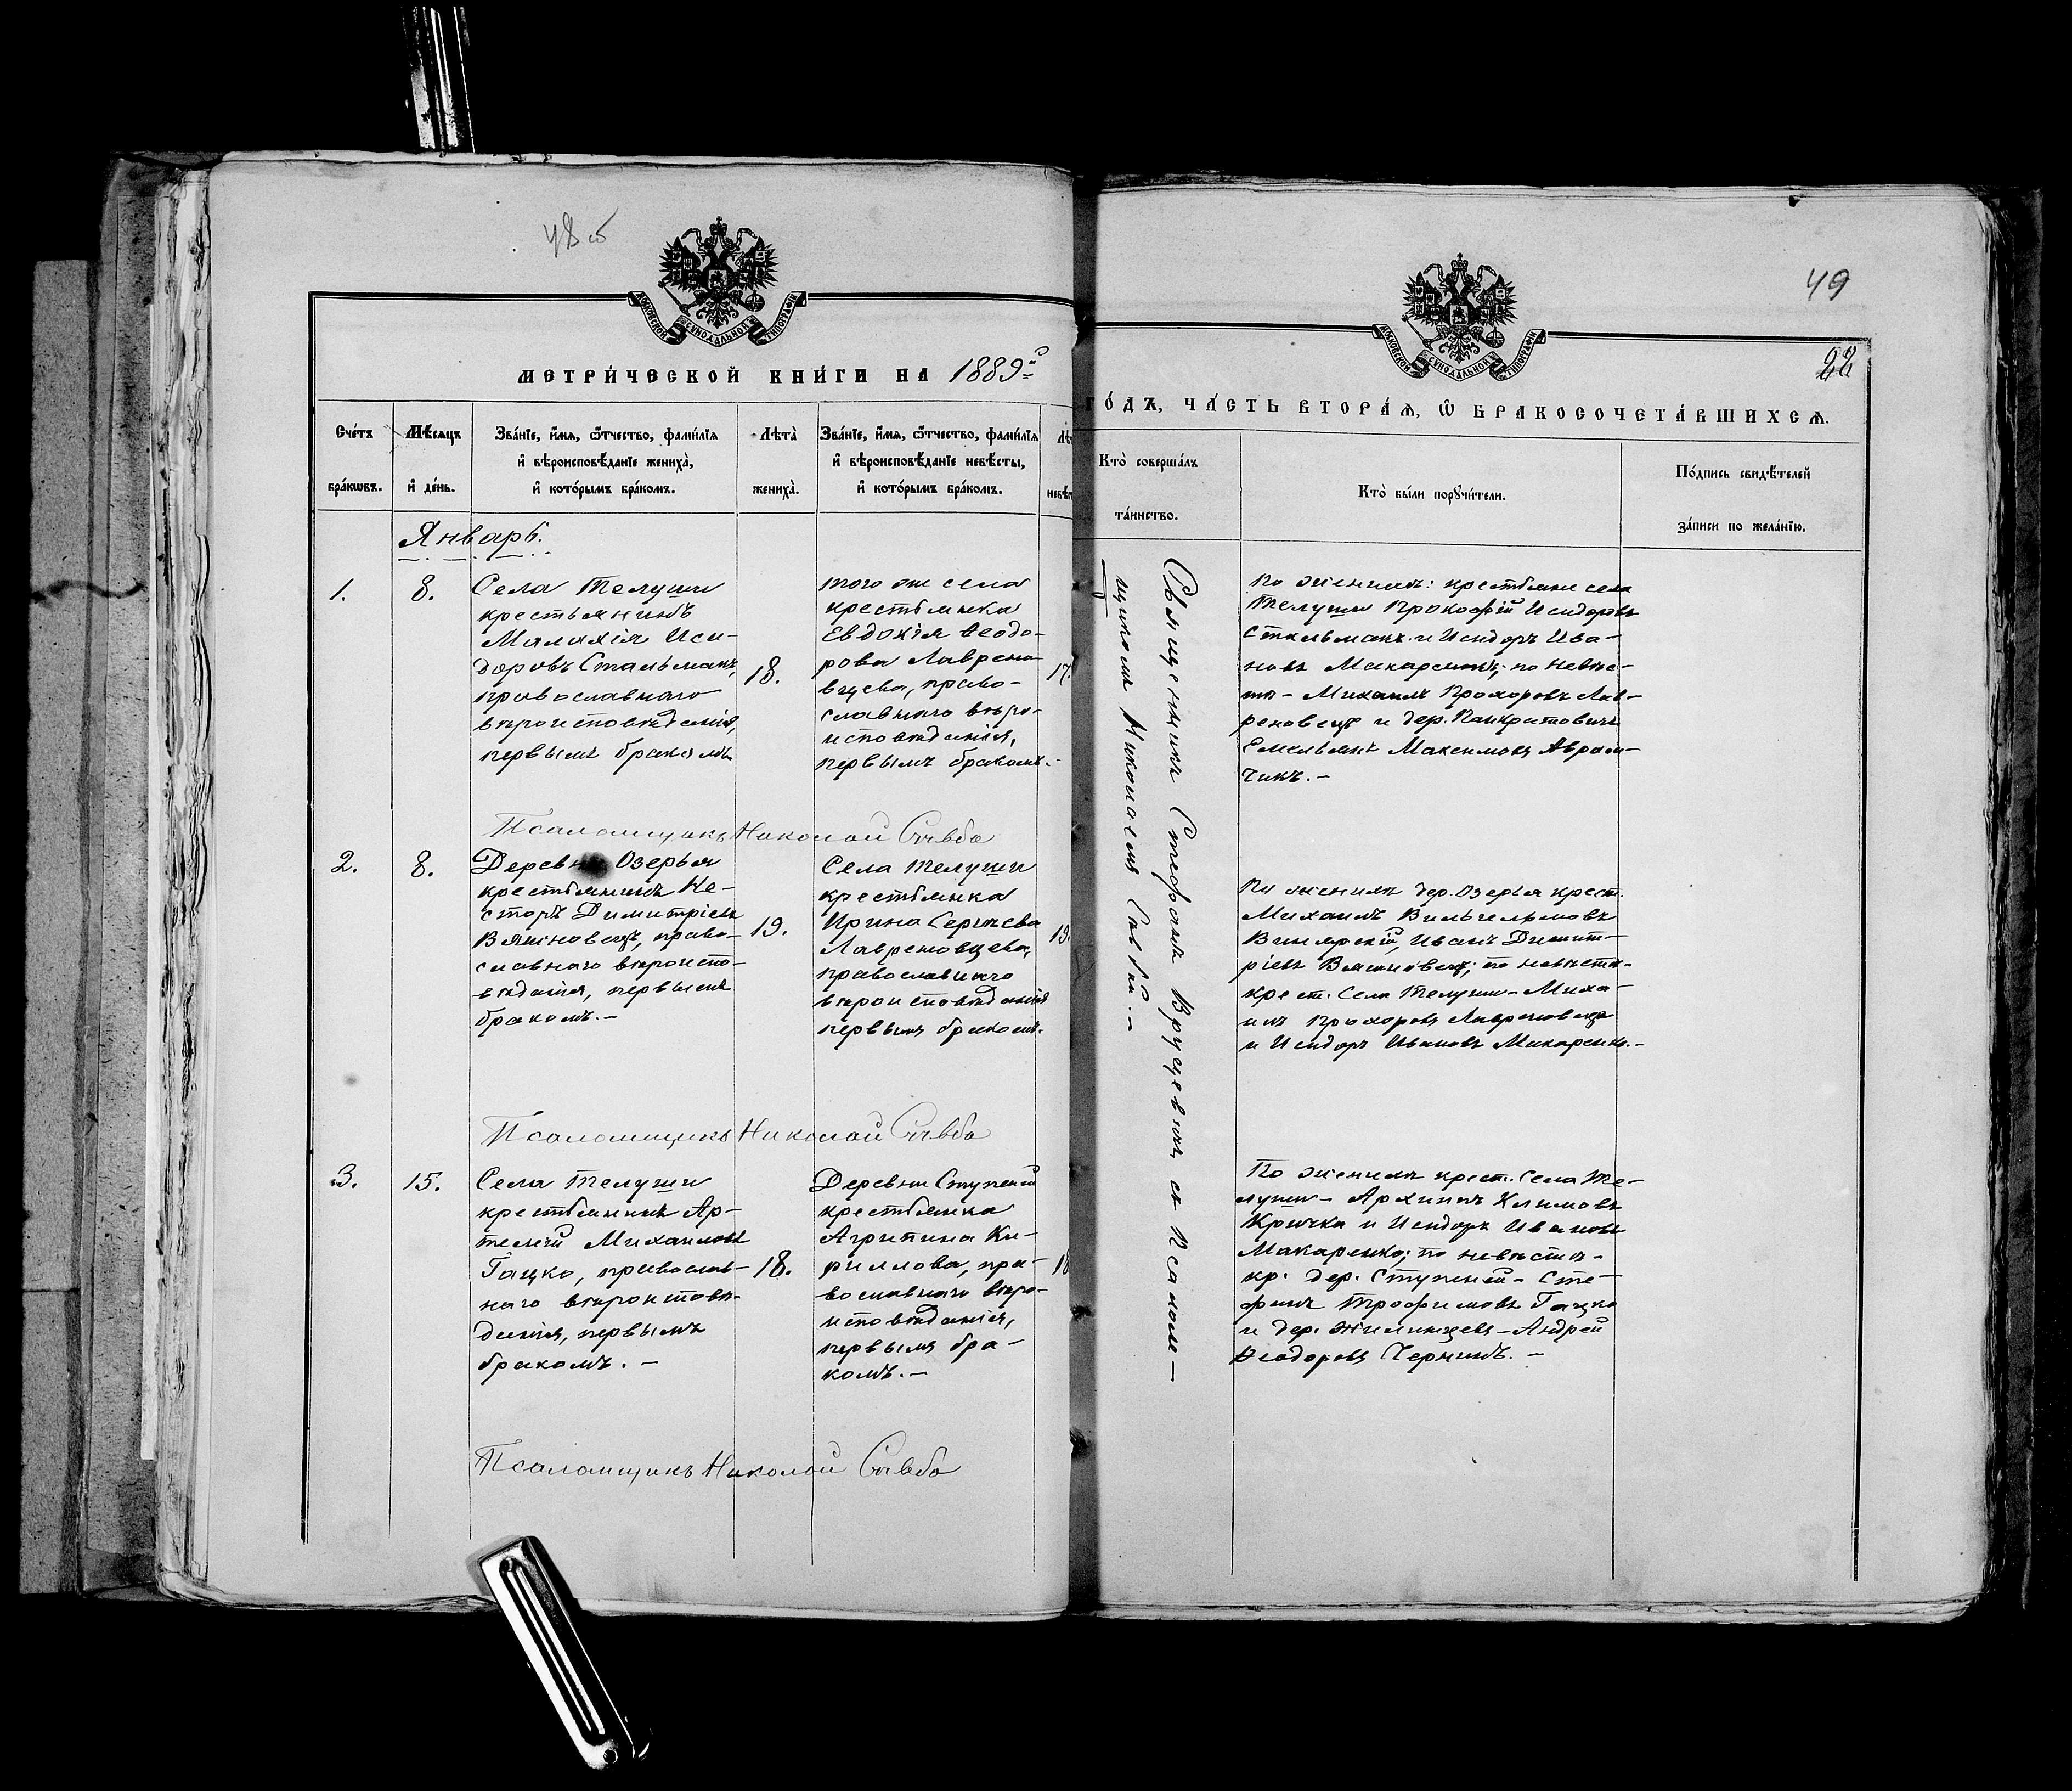 48 об
МОСКОВСКОЙ СѴНОДАЛЬНОЙ ТИПОГРАФІИ
МЕТРИ́ЧЕСКОЙ КНИ́ГИ НА 1889й
Сче́тъ бра́кѡвъ.
Мѣ́сяцъ и҆ де́нь.
Зва́нїе, и҆́мя, ѻ҆́тчество, фами́лїя
и҆ вѣроисповѣ́данїе жениха̀,
и҆ кото́рымъ бра́комъ.
Лѣта̀ жениха̀.
Зва́нїе, и҆́мя, ѻ҆́тчество, фами́лїя
и҆ вѣроисповѣ́данїе невѣ́сты,
и҆ кото́рымъ бра́комъ.
Январь.
1.
8.
Села Телуши
крестьянинъ
Малахія Иси-
доровъ Стальмакъ,
православнаго
вѣроисповѣданія,
первымъ бракомъ
18.
того же села
крестьянка
Евдокія Ѳеодо-
рова Лаврено-
вцева, право-
славнаго вѣро-
исповѣданія,
первымъ бракомъ.-
17.
Псаломщикъ Николай Савба
2.
8.
Деревни Озерья
крестьянинъ Не-
сторъ Димитріевъ
Вяжновецъ, право-
славнаго вѣроиспо-
вѣданія, первымъ
бракомъ.-
19.
Села Телуши
крестьянка
Ирина Сергѣева
Лавреновцева,
православнаго
вѣроисповѣданія
первымъ бракомъ.
19.
Псаломщикъ Николай Савба
3.
15.
Села Телуши
крестьянинъ Ар-
темій Михаиловъ
Гацко, православ-
наго вѣроисповѣ-
данія, первымъ
бракомъ.-
18.
Деревни Ступеней
крестьянка
Агрипина Ки-
риллова, пра-
вославнаго вѣро-
исповѣданія,
первымъ бра-
комъ.-
18
Псаломщикъ Николай Савба
49
22
МОСКОВСКОЙ СѴНОДАЛЬНОЙ ТИПОГРАФІИ
ГО́ДЪ, ЧА́СТЬ ВТОРА́Я, Ѡ҆ БРАКОСОЧЕТА́ВШИХСЯ.
Кто̀ соверша́лъ
та́инство.
Кто̀ бы́ли порꙋчи́тели.
По́дпись свидѣ́телей
за́писи по жела́нїю.
Священникъ Стефанъ Вруцевичъ съ Псалом-
щикомъ Николаемъ Савбой.-
По женихѣ: крестьяне села
Телуши Прокофій Исидоровъ
Стальмакъ и Исидоръ Ива-
новъ Макаренко; по невѣс-
тѣ - Михаилъ Прохоровъ Лав-
реновецъ и дер. Панкратовичъ
Емельянъ Максимовъ Аврам-
чикъ.-
По женихѣ дер. Озерья крест.
Михаилъ Вильгельмовъ
Винярскій, Иванъ Димит-
ріевъ Вяжновецъ; по невѣстѣ-
крест. Села Телуши - Миха-
илъ Прохоровъ Лавреновецъ
и Исидоръ Ивановъ Макаренко.-
По женихѣ крест. Села Те-
луши - Архипъ Климовъ
Кричка и Исидоръ Ивановъ
Макаренко; по невѣстѣ-
кр. дер. Ступеней - Сте-
фанъ Трофимовъ Гацко
и дер. Жилинцевъ - Андрей
Ѳеодоровъ Чернинъ.-